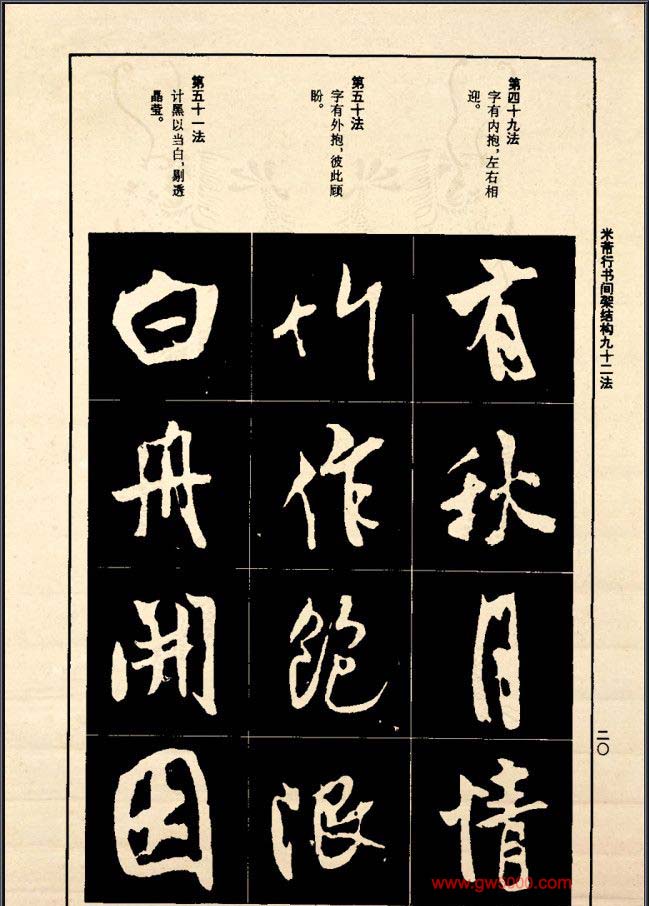 米芾行书间架结构九十二法
二〇
第四十九法
字有内抱，左右相
迎。
有秋月情
第五十法
字有外抱，彼此顾
盼。
竹作飽限
第五十一法
计黑以当白，剔透
晶莹。
白舟開因
www.gw5000.com